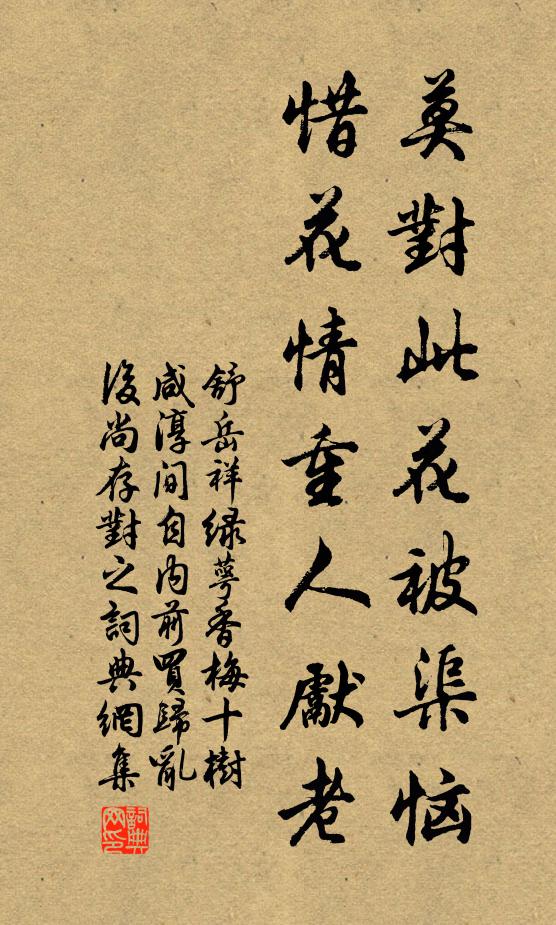 莫對此花被渠恼
惜花情重人獻老
舒岳祥緑萼香梅十樹
咸淳间自内前買歸亂
後尚存對之詞典網集
詞典
网印